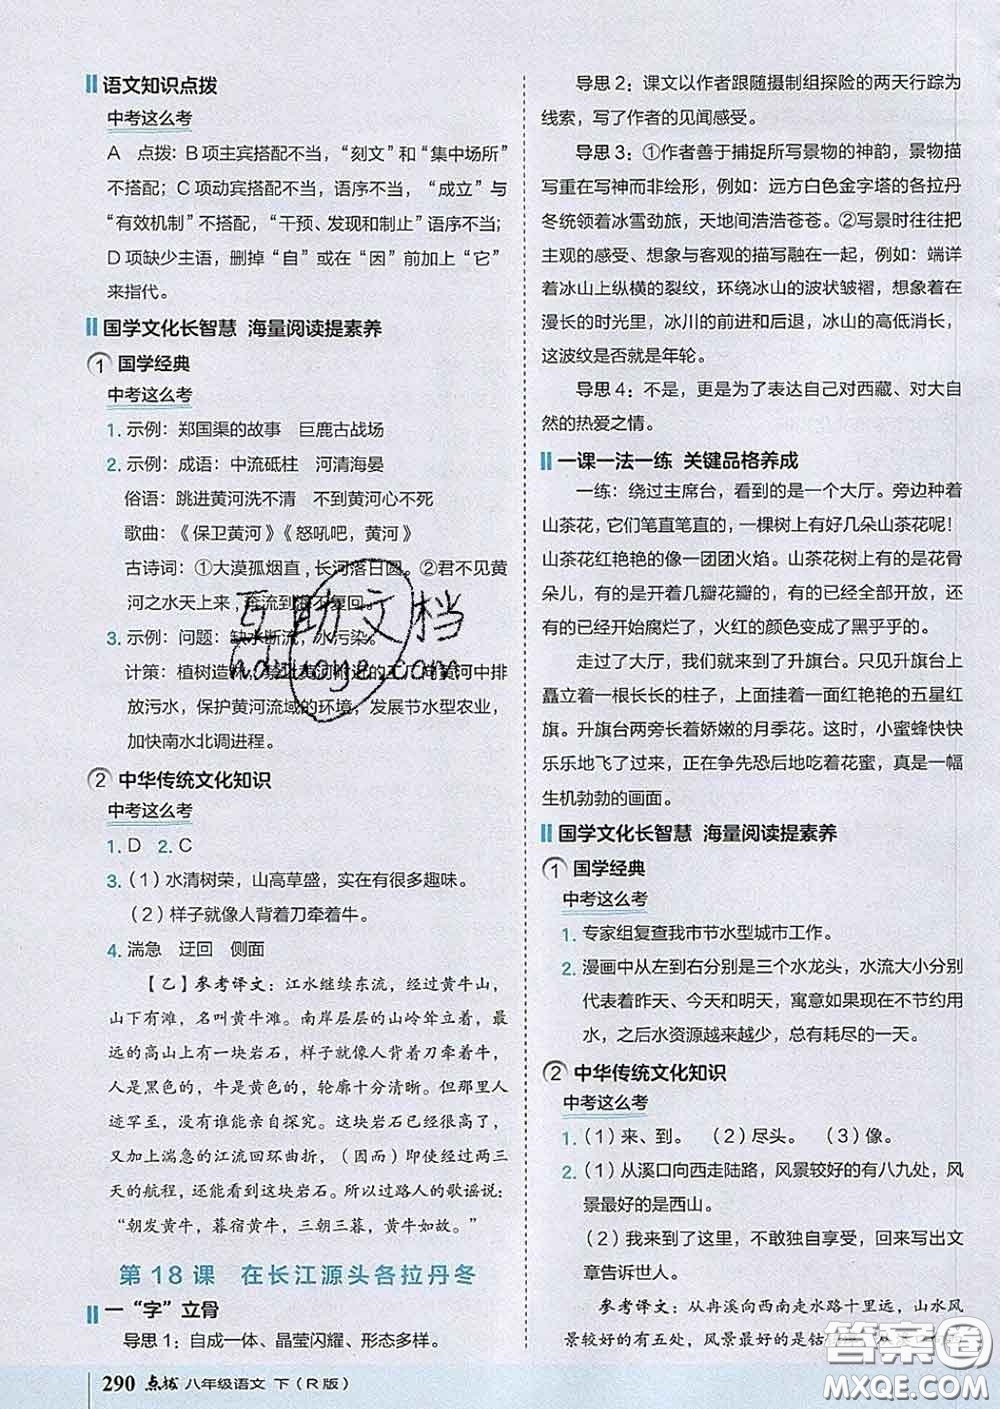 语文知识点拨
中考这么考
A 点拨：B 项主宾搭配不当，“刻文”和“集中场所”
不搭配；C 项动宾搭配不当，语序不当，“成立”与
“有效机制”不搭配，“干预、发现和制止”语序不当；
D 项缺少主语，删掉“自”或在“因”前加上“它”
来指代。
国学文化长智慧 海量阅读提素养
① 国学经典
中考这么考
1. 示例：郑国渠的故事 巨鹿古战场
2. 示例：成语：中流砥柱 河清海晏
俗语：跳进黄河洗不清 不到黄河心不死
歌曲：《保卫黄河》《怒吼吧，黄河》
古诗词：①大漠孤烟直，长河落日圆。②君不见黄
河之水天上来，奔流到海不复回。
3. 示例：问题：缺水断流，水污染。
计策：植树造林，禁止黄河附近的工厂向黄河中排
放污水，保护黄河流域的环境，发展节水型农业，
加快南水北调进程。
② 中华传统文化知识
中考这么考
1. D 2. C
3.（1）水清树荣，山高草盛，实在有很多趣味。
（2）样子就像人背着刀牵着牛。
4. 湍急 迂回 侧面
【乙】参考译文：江水继续东流，经过黄牛山，
山下有滩，名叫黄牛滩。南岸层层的山岭耸立，最
远的高山上有一块岩石，样子就像人背着刀牵着牛，
人是黑色的，牛是黄色的，轮廓十分清晰。但那里人
迹罕至，没有谁能亲自探究。这块岩石已经很高，
又加上湍急的江流回环曲折，（因而）即使经过两三
天的航程，还能看到这块岩石。所以过路人的歌谣说：
“朝发黄牛，暮宿黄牛，三朝三暮，黄牛如故。”
第 18 课 在长江源头各拉丹冬
一“字”立骨
导思 1：自成一体、晶莹闪耀、形态多样。
导思 2：课文以作者跟随摄制组探险的两天行踪为
线索，写了作者的见闻感受。
导思 3：①作者善于捕捉所写景物的神韵，景物描
写重在写神而非绘形，例如：远方白色金字塔的各拉丹
冬统领着冰雪劲旅，天地间浩浩苍苍。②写景往往把
主观的感受、想象与客观的描写融在一起，例如：端详
着冰山上纵横的裂纹，环绕冰山的波状皱褶，想象着在
漫长的时光里，冰川的前进和后退，冰山的高低消长，
这波纹是否就是年轮。
导思 4：不是，更是为了表达自己对西藏、对大自
然的热爱之情。
一课一法一练 关键品格养成
一练：绕过主席台，看到的是一个大厅。旁边种着
山茶花，它们笔直笔直的，一棵树上有好几朵山茶花呢！
山茶花红艳艳的像一团团火焰。山茶花树上有的是花骨
朵儿，有的已经展开了几瓣花瓣，有的已经全部开放，还
有的已经开始腐烂了，火红的颜色变成了黑乎乎的。
走过了大厅，我们就来到了升旗台。只见升旗台上
矗立着一根长长的柱子，上面挂着一面红艳艳的五星红
旗。升旗台两旁长着娇嫩的月季花。这时，小蜜蜂快快
乐乐地飞过来了，正在争先恐后地吃着花蜜，真是一幅
生机勃勃的画面。
国学文化长智慧 海量阅读提素养
① 国学经典
中考这么考
1. 专家组复查我市节水型城市工作。
2. 漫画中从左到右分别是三个水龙头，水流大小分别
代表着昨天、今天和明天，寓意如果现在不节约用
水，之后水资源越来越少，总有耗尽的一天。
② 中华传统文化知识
中考这么考
1.（1）来、到。 （2）尽头。 （3）像。
2.（1）从溪口向西走陆路，风景较好的有八九处，风
景最好的是西山。
（2）我来到了这里，不敢独自享受，要用它写出文
章告诉世人。
参考译文：从冉溪向西南走水路十里远，山水风
景较好的有五处，风景最好的是钴
290 点拨 八年级语文 下（R 版）
互助文档
hdzuoye.com
答案圈
MXQE.COM